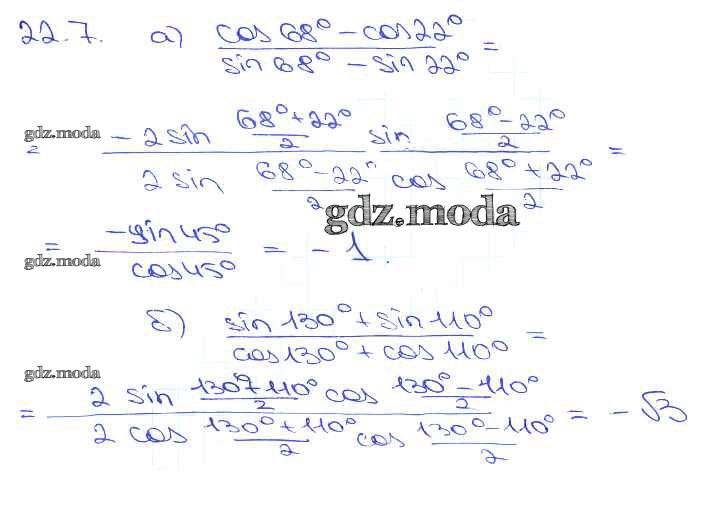 22.7. а) (cos 68° − cos 22°)/(sin 68° − sin 22°) =
gdz.moda
= (−2 sin (68°+22°)/2 sin (68°−22°)/2)/(2 sin (68°−22°)/2 cos (68°+22°)/2) =
gdz.moda
= (−sin 45°)/(cos 45°) = −1.
gdz.moda
б) (sin 130° + sin 110°)/(cos 130° + cos 110°) =
gdz.moda
= (2 sin (130°+110°)/2 cos (130°−110°)/2)/(2 cos (130°+110°)/2 cos (130°−110°)/2) = −√3